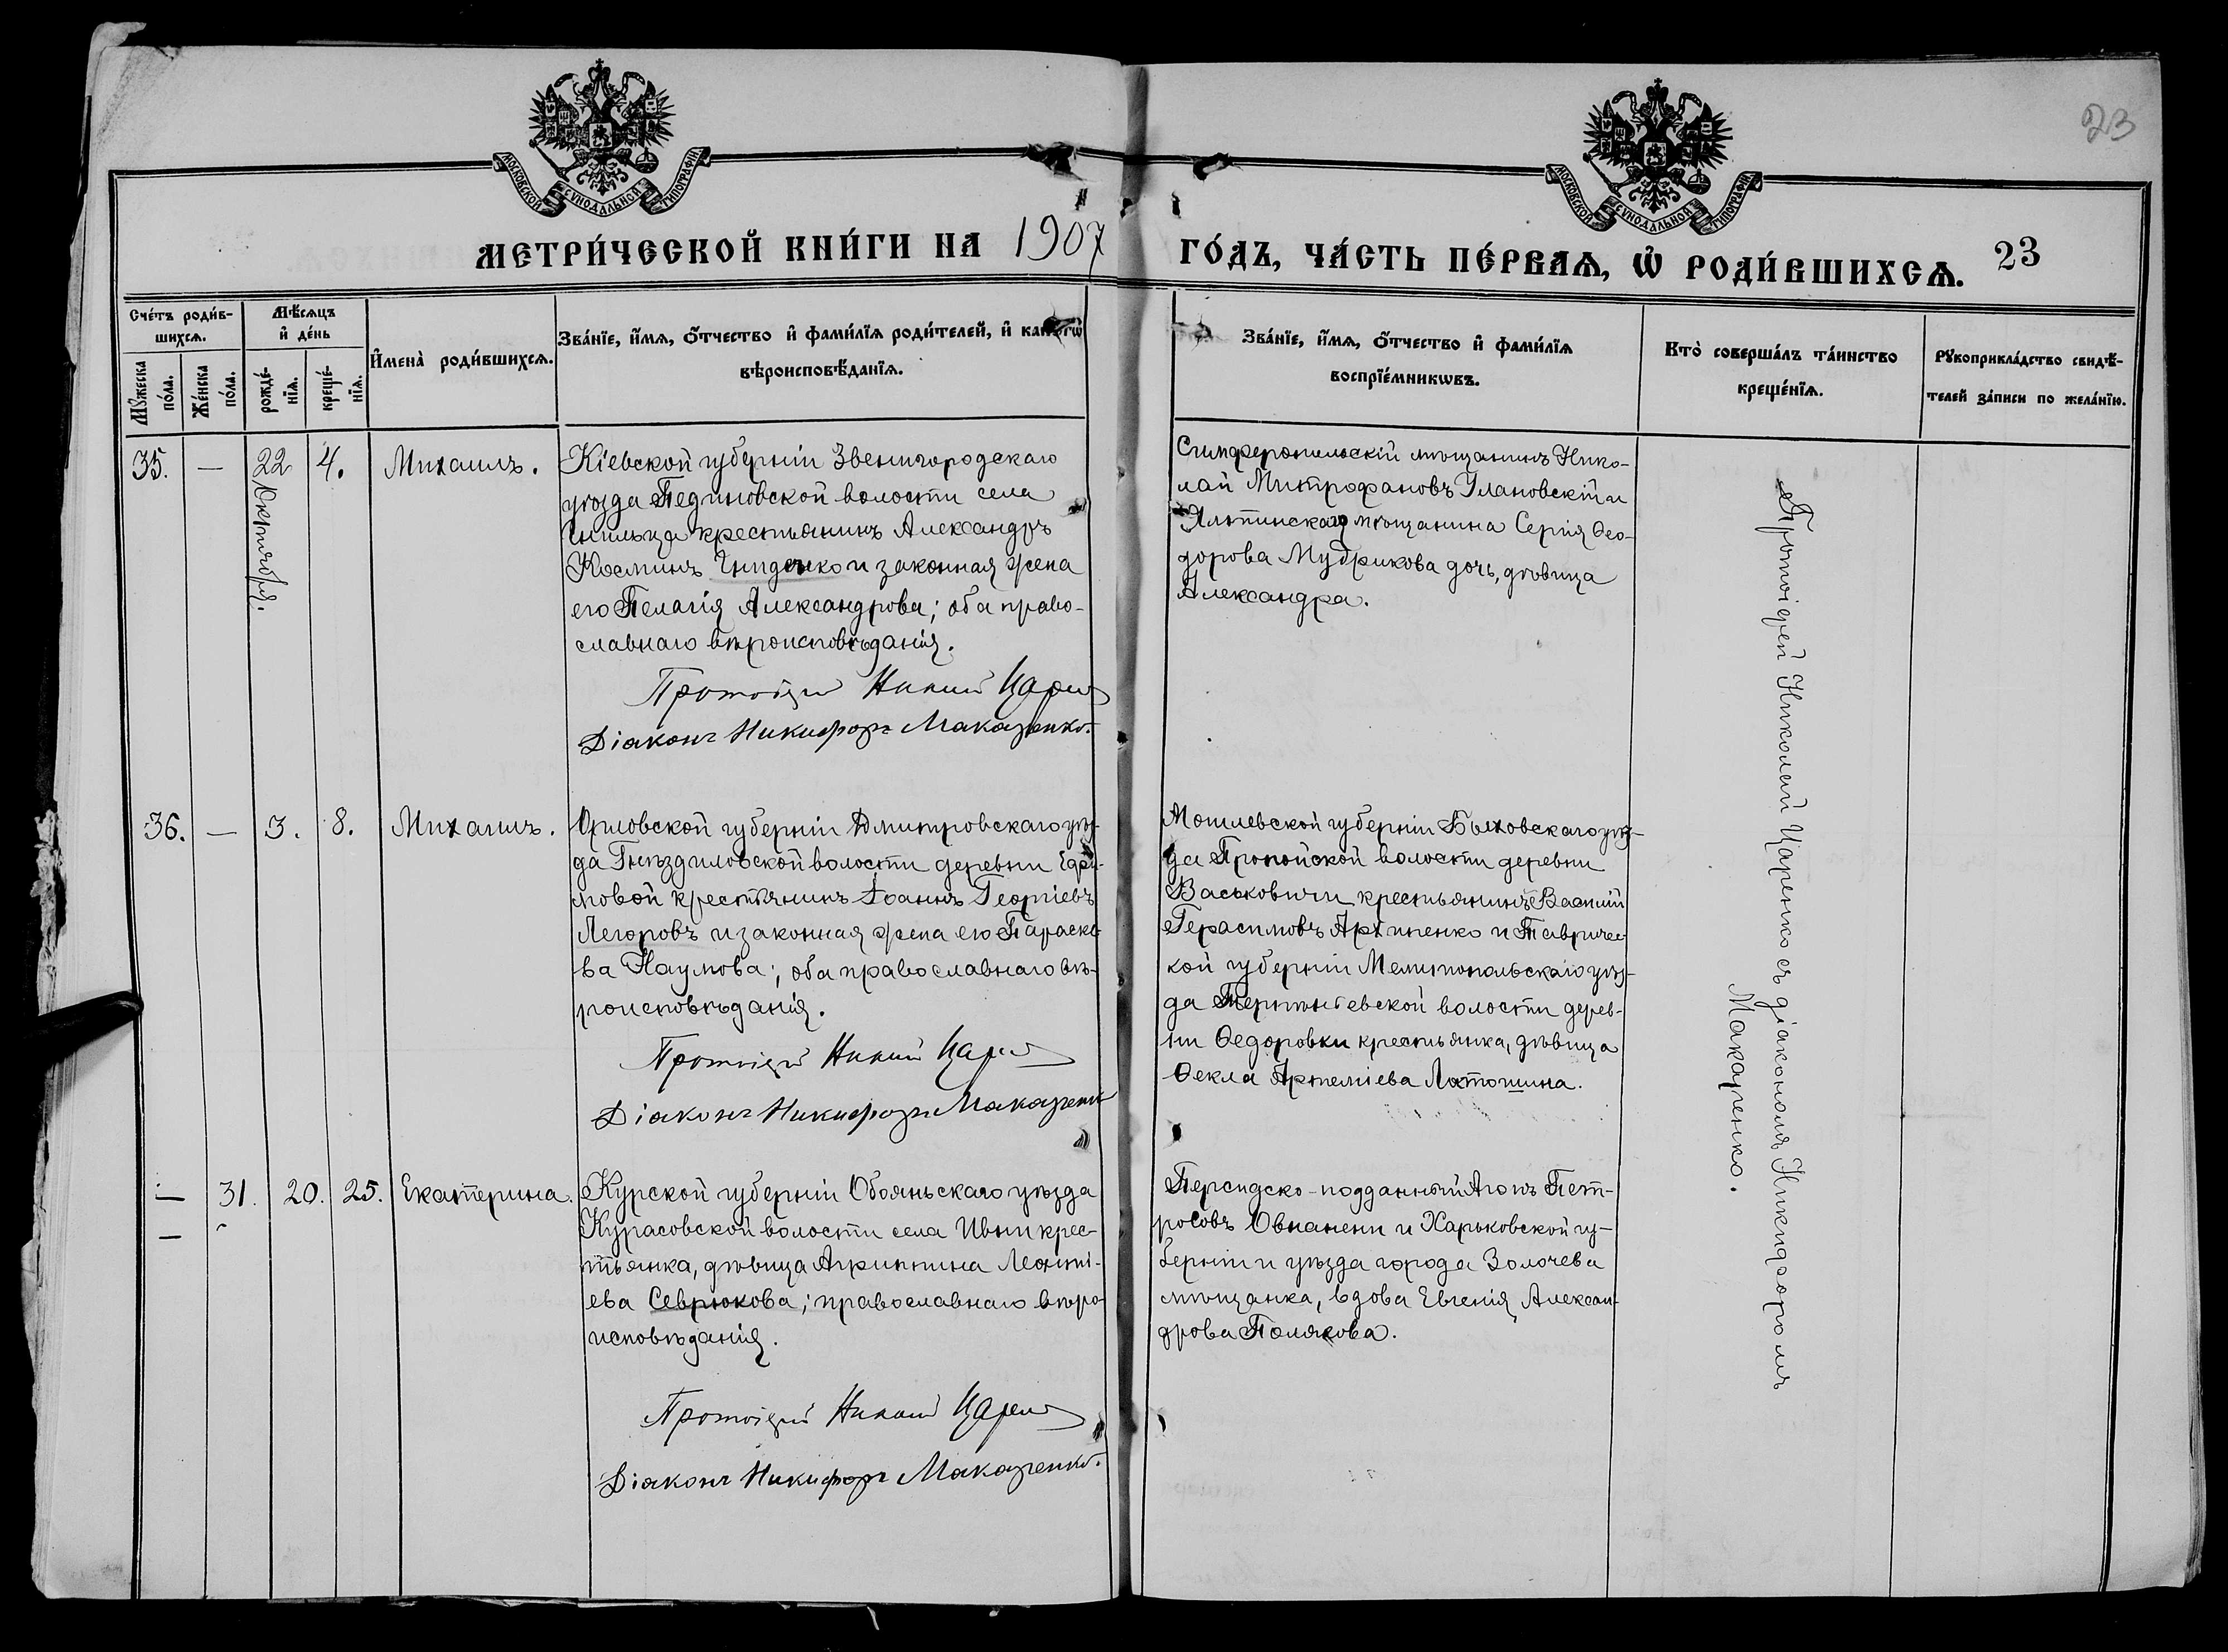 23
МОСКОВСКОЙ СѴНОДАЛЬНОЙ ТИПОГРАФІИ
МОСКОВСКОЙ СѴНОДАЛЬНОЙ ТИПОГРАФІИ
МЕТРИ́ЧЕСКОЙ КНИ́ГИ НА 1907 ГО́ДЪ, ЧА́СТЬ ПЕ́РВАѦ, Ѡ҆ РОДИ́ВШИХСѦ. 23
Сче́тъ роди́в-
шихсѧ.
Мꙋ́жеска
по́ла.
Же́нска
по́ла.
Мѣ́сѧцъ
и҆ де́нь
рожде́-
нїѧ.
креще́-
нїѧ.
И҆мена̀ роди́вшихсѧ.
Зва́нїе, и҆́мѧ, ѻ҆́тчество и҆ фами́лїѧ роди́телей, и҆
вѣроисповѣ́данїѧ.
Зва́нїе, и҆́мѧ, ѻ҆́тчество и҆ фами́лїѧ
воспрїе́мникѡвъ.
Кто̀ соверша́лъ та́инство
креще́нїѧ.
Рꙋкоприкла́дство свидѣ́-
телей за́писи по жела́нїю.
35. — 22 4. Михаилъ.
Октября.
Кіевской губерніи Звенигородскаго
уѣзда Пединовской волости села
Гнильца крестьянинъ Александръ
Косминъ Гниденко и законная жена
его Пелагія Александрова; оба право-
славнаго вѣроисповѣданія.
Протоіерей Николай Царенко
Діаконъ Никифоръ Макаренко.
Симферопольскій мѣщанинъ Нико-
лай Митрофановъ Улановскій и
Ялтинскаго мѣщанина Сергія Ѳео-
дорова Мудрикова дочь, дѣвица
Александра.
Протоіерей Николай Царенко съ діакономъ Никифоромъ
Макаренко.
36. — 3. 8. Михаилъ.
Орловской губерніи Дмитровскаго уѣз-
да Гнѣздиловской волости деревни Ефи-
мовой крестьянинъ Іоаннъ Георгіевъ
Легоровъ и законная жена его Параске-
ва Наумова; оба православнаго вѣ-
роисповѣданія.
Протоіерей Николай Царенко
Діаконъ Никифоръ Макаренко
Могилевской губерніи Быховскаго уѣз-
да Пропойской волости деревни
Васьковичи крестьянинъ Василій
Герасимовъ Архипенко и Тавричес-
кой губерніи Мелитопольскаго уѣз-
да Терпѣньевской волости дерев-
ни Ѳедоровки крестьянка, дѣвица
Ѳекла Артеміева Латошина.
— 31. 20. 25. Екатерина.
—
Курской губерніи Обояньскаго уѣзда
Курасовской волости села Ивни крес-
тьянка, дѣвица Агриппина Леонті-
ева Севрюкова; православнаго вѣро-
исповѣданія.
Протоіерей Николай Царенко
Діаконъ Никифоръ Макаренко.
Персидско-подданный Агопъ Пет-
росовъ Овнанени и Харьковской гу-
берніи и уѣзда города Золочева
мѣщанка, вдова Евгенія Алексан-
дрова Полякова.